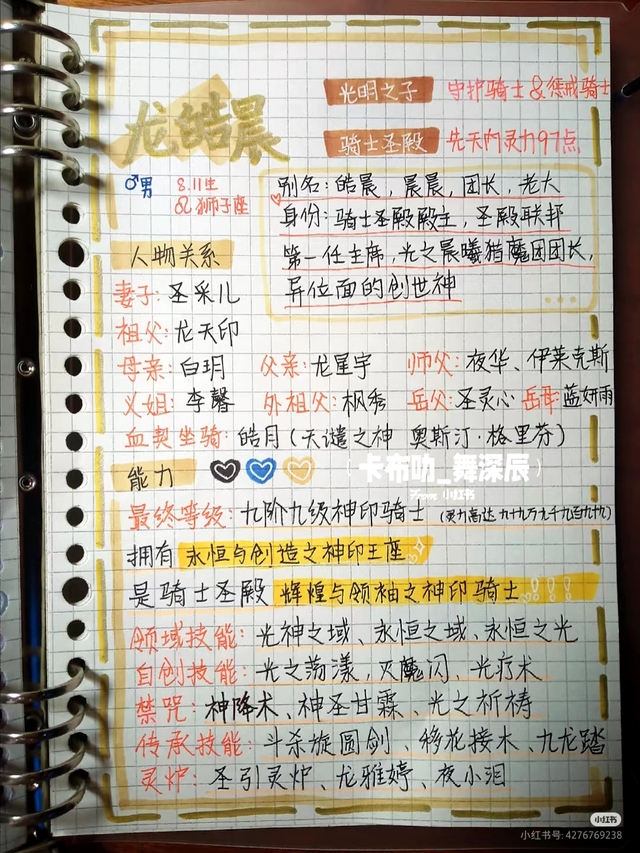 光明之子 守护骑士&惩戒骑士
龙皓晨
骑士圣殿 先天内灵力97点
♂男 8.11生
♌狮子座
别名：皓晨，晨晨，团长，老大
身份：骑士圣殿殿主，圣殿联邦
第一任主席，光之晨曦猎魔团团长，
异位面的创世神
人物关系
妻子：圣采儿
祖父：龙天印
母亲：白玥 父亲：龙星宇 师父：夜华、伊莱克斯
义姐：李馨 外祖父：枫秀 岳父：圣灵心 岳母：蓝妍雨
血契坐骑：皓月（天谴之神 奥斯汀·格里芬）
能力
卡布叻_舞深辰）
From 小红书
最终等级：九阶九级神印骑士（灵力高达九十九万九千九百九十九）
拥有永恒与创造之神印王座
是骑士圣殿辉煌与领袖之神印骑士!!!
领域技能：光神之域、永恒之域、永恒之光
自创技能：光之荡漾，灭魔闪、光疗术
禁咒：神降术、神圣甘霖、光之祈祷
传承技能：斗杀旋圆剑、移花接木、九龙踏
灵炉：圣引灵炉、龙雅婷、夜小泪
小红书
小红书号：4276769238